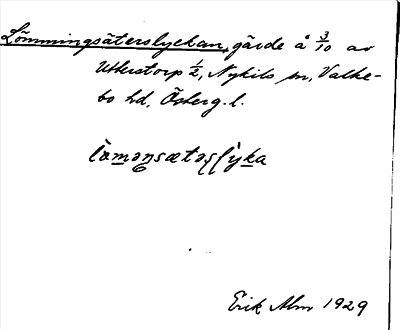 Lömmingsäterslyckan, gärde å 3/10 av
Utterstorp 1/2, Nykils sn, Valke-
bo hd, Österg. l.
Erik Alm 1929